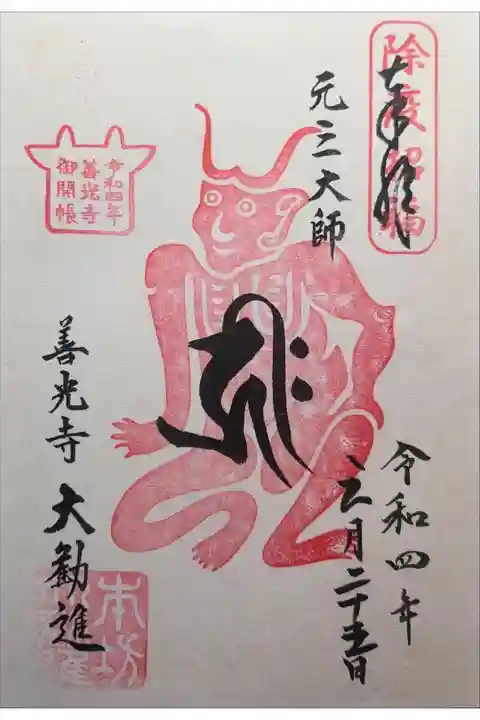 除疫招福
奉拝
元三大師
令和四年
善光寺
御開帳
善光寺 大勧進
令和四年
六月二十五日
本坊